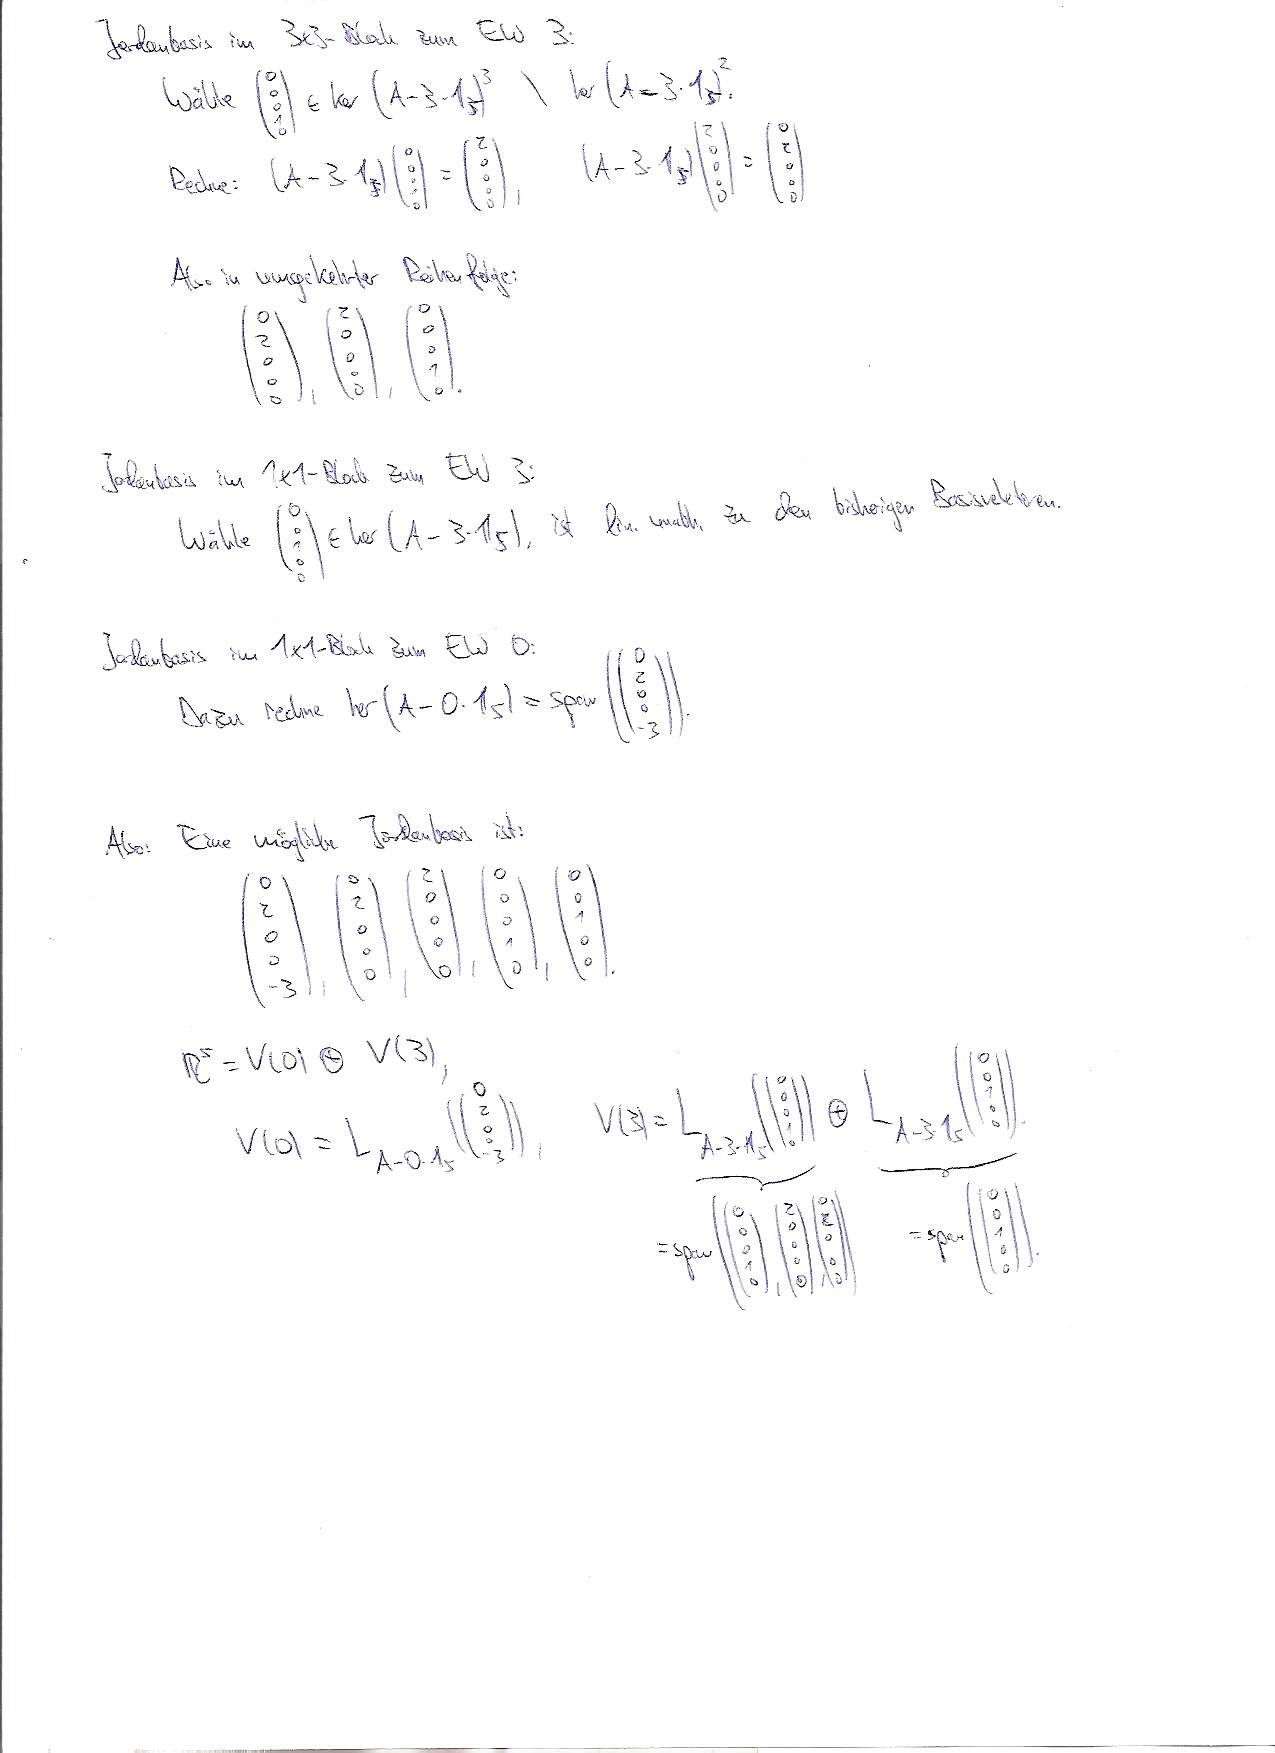 Jordanbasis im 3x3-Block zum EW 3:
Wähle (0 0 0 1 0) ∈ ker (A - 3·1₅)³ \ ker (A - 3·1₅)².
Rechne: (A - 3·1₅)(0 0 0 1 0) = (2 0 0 0 0), (A - 3·1₅)(2 0 0 0 0) = (0 2 0 0 0)
Also in umgekehrter Reihenfolge:
(0 2 0 0 0), (2 0 0 0 0), (0 0 0 1 0).
Jordanbasis im 1x1-Block zum EW 3:
Wähle (0 0 1 0 0) ∈ ker (A - 3·1₅), ist lin. unabh. zu den bisherigen Basisvektoren.
Jordanbasis im 1x1-Block zum EW 0:
Dazu rechne ker (A - 0·1₅) = span ((0 2 0 0 -3)).
Also: Eine mögliche Jordanbasis ist:
(0 2 0 0 -3), (0 2 0 0 0), (2 0 0 0 0), (0 0 0 1 0), (0 0 1 0 0).
ℝ⁵ = V(0) ⊕ V(3),
V(0) = L_{A-0·1₅} ((0 2 0 0 -3)), V(3) = L_{A-3·1₅} ((0 0 0 1 0)) ⊕ L_{A-3·1₅} ((0 0 1 0 0)).
= span ((0 0 0 1 0), (2 0 0 0 0), (0 2 0 0 0)) = span ((0 0 1 0 0)).